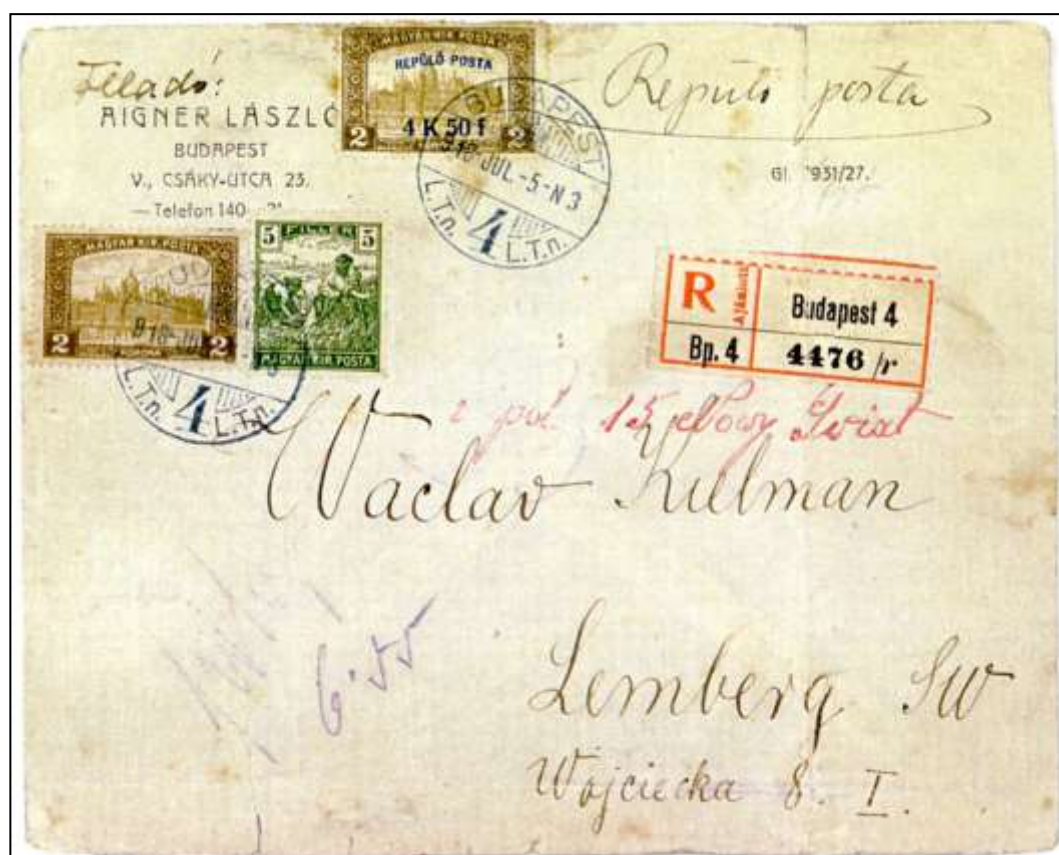 Feladó:
AIGNER LÁSZLÓ
BUDAPEST
V., CSÁKY-UTCA 23.
— Telefon 140
MAGYAR KIR. POSTA
REPÜLŐ POSTA
2 4 K 50 f 2
BUDAPEST
918 JUL. -5 -N 3
4
L.T.n. L.T.n.
Repülő posta
931/27.
MAGYAR KIR. POSTA
2 KORONA 2
918
4
L.T.n. L.T.n.
5 FILLÉR 5
MAGYAR KIR. POSTA
R Ajánlott Budapest 4
Bp. 4 4476 /r
15 Nowy Swiat
Waclav Kulman
6.55
Lemberg SW
Wojciecka 8. I.